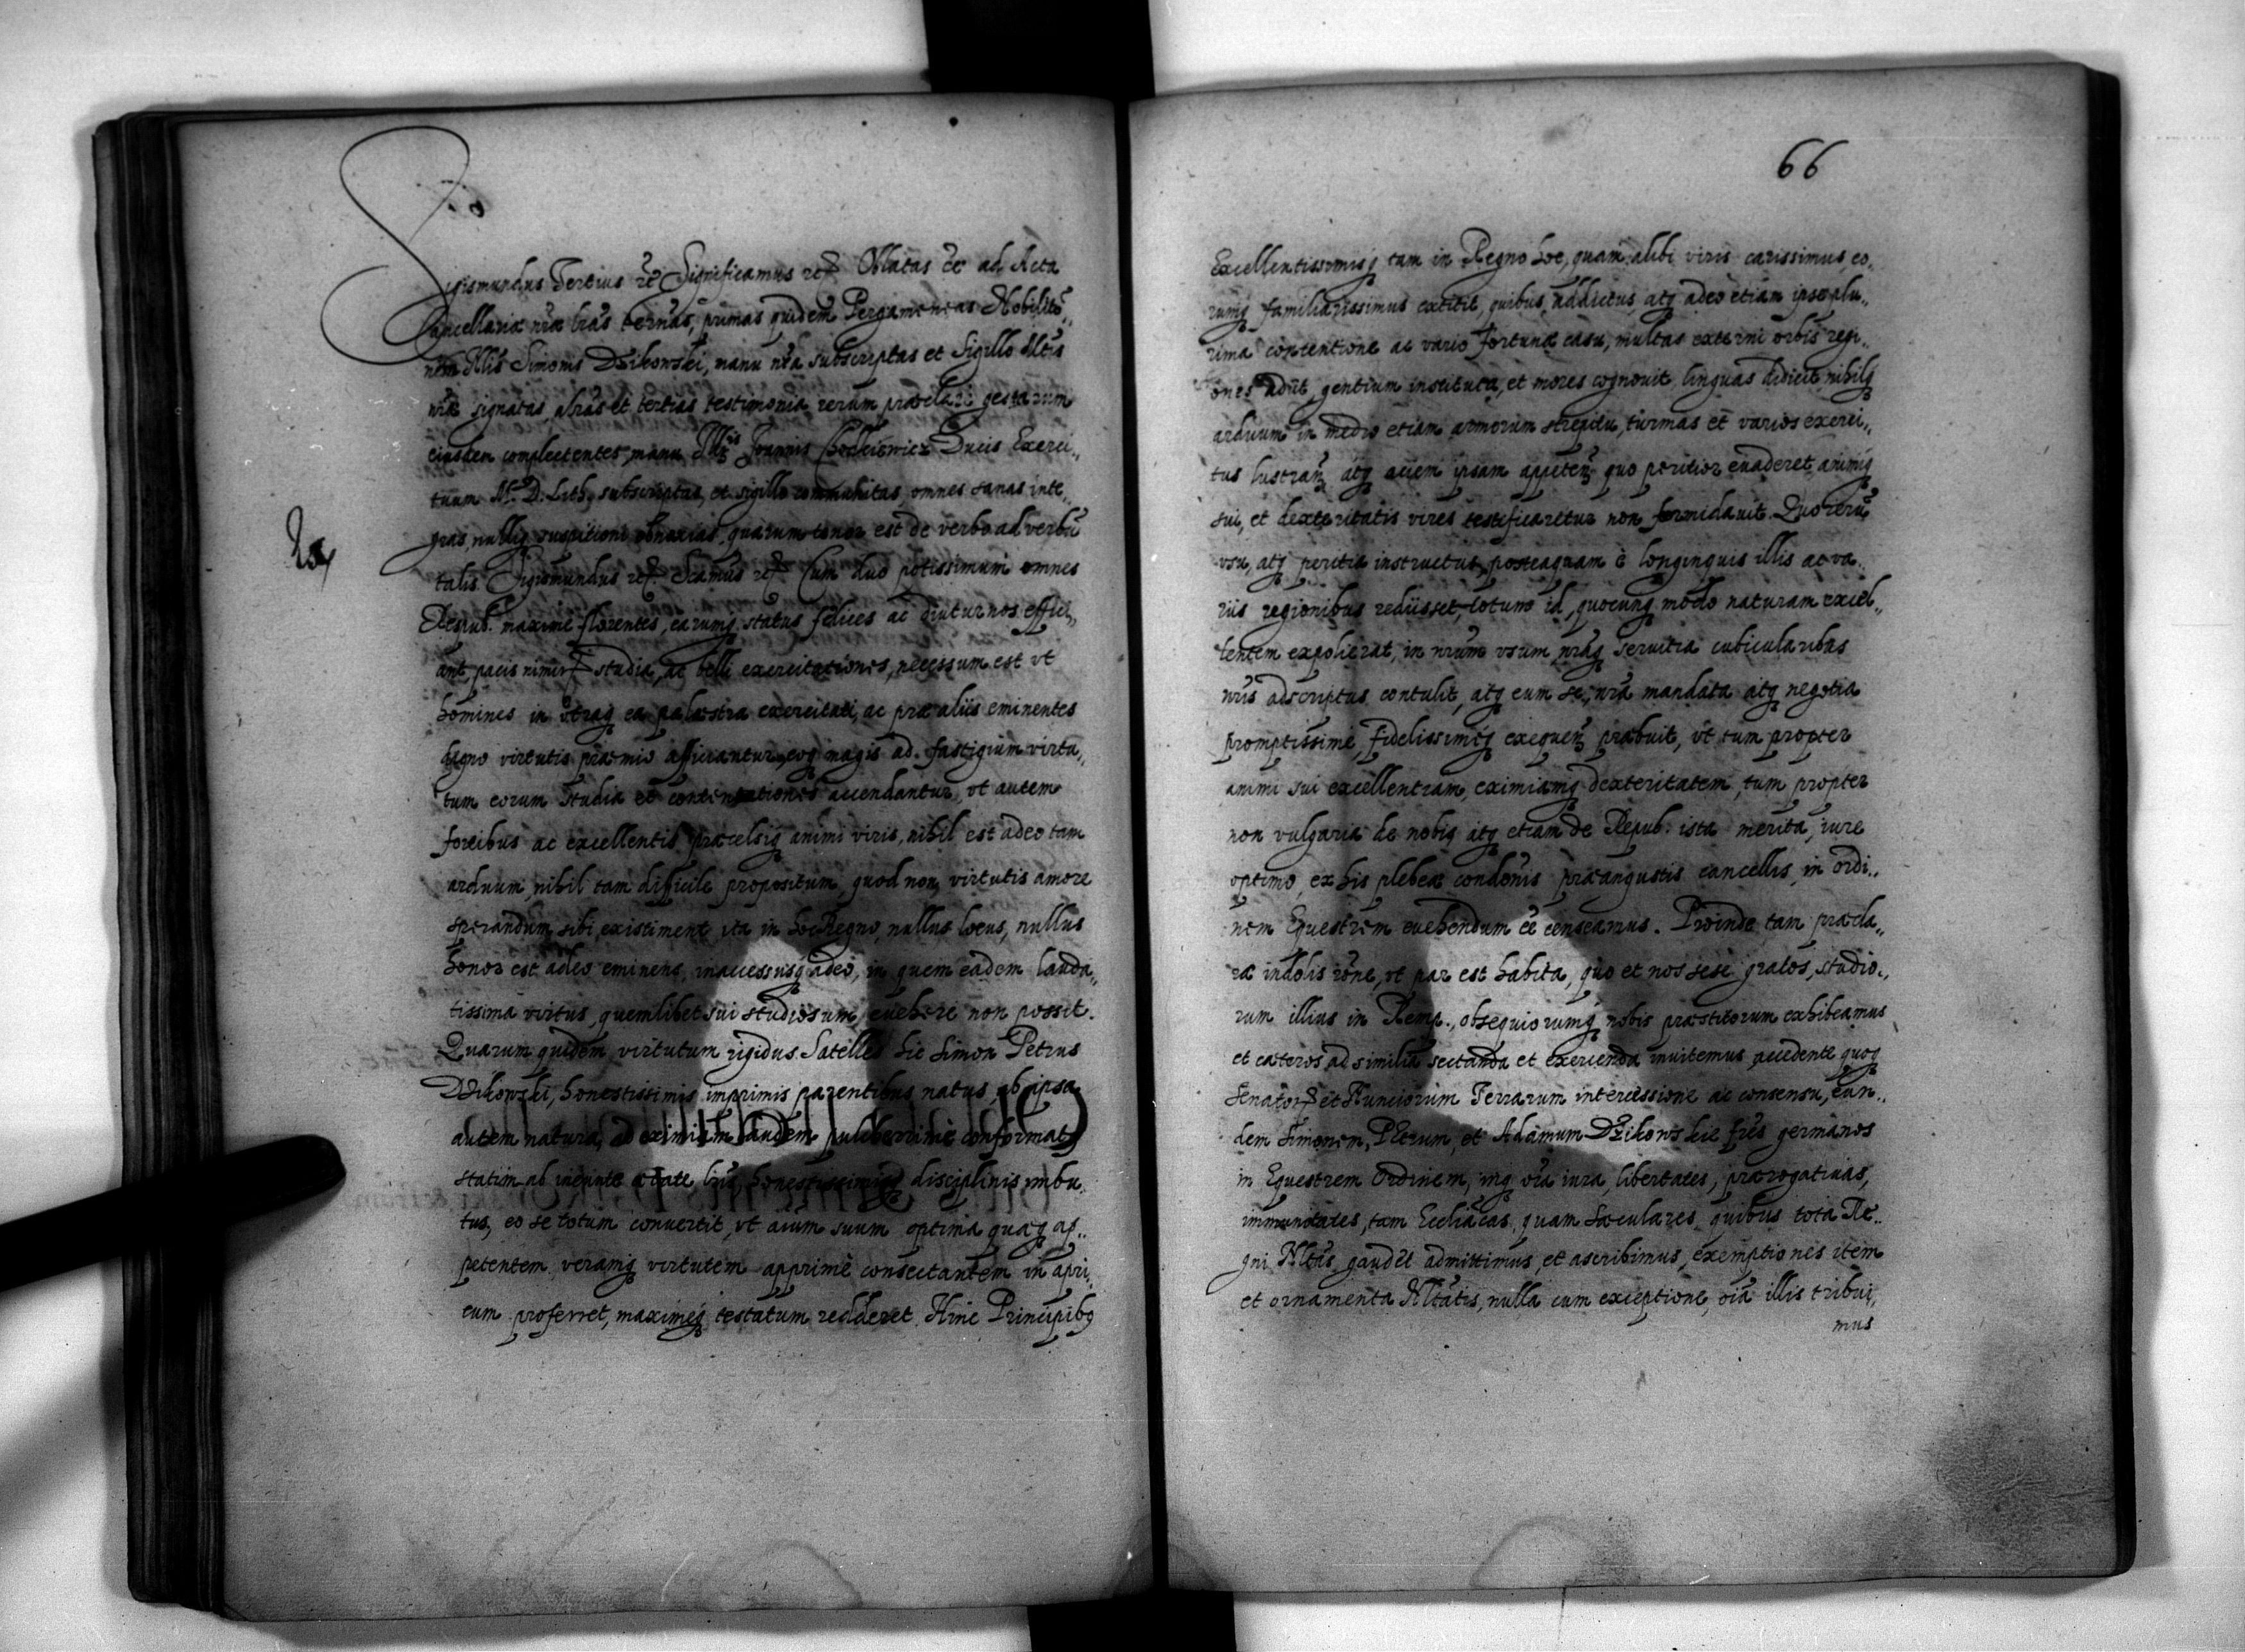 Sigismundus Tertius etc Significamus etc Oblatas ee ad Acta
Cancellariæ nræ lras ternas, primas quidem Pergameneas Nobilita„
Nblis Simonis Dzikowski, manu nra subscriptas et Sigillo
nra signatas, alras et tertias testimonia rerum præclare gestarum
eiusdem complectentes, manu Illris Joannis Chodkiewicz Ducis Exerci„
tuum M. D. Lith. subscriptas, et sigillo communitas, omnes sanas inte„
gras, nulliq suspitioni obnoxias, quarum tenor est de verbo ad verbu
talis. Sigismundus etc. Scamus etc. Cum duo potissimum omnes
Respub. maxime florentes, earumq status felices ac diuturnos effici„
ant, pacis nimir studia, ac belli exercitationes, necessum est vt
homines in vtraq ea palæstra exercitati, ac præ aliis eminentes
digno virtutis præmio afficiantur, eoq magis ad fastigium virtu„
tum eorum studia et contentationes accendantur, vt autem
fortibus ac excellentis præcelsiq animi viris, nihil est adeo tam
arduum, nihil tam difficile propositum, quod non virtutis amore
sperandum sibi existiment, ita in hoc Regno, nullus locus, nullus
honor est adeo eminens, inaccessusq adeo, in quem eadem lauda„
tissima virtus, quemlibet sui studiosum, euehere non possit.
Quarum quidem virtutum rigidus Satelles hic Simon Petrus
Dzikowski, honestissimis imprimis parentibus natus, ab ipsa
autem natura, ad eximiam laudem pulcherrime conformatq
statim ab ineunte ætate lris, honestissimisq disciplinis imbu„
tus, eo se totum conuertit, vt aium suum optima quæq ap„
petentem, veramq virtutem apprime consectantem in apri„
cum proferret, maximeq testatum redderet. Hinc Principibq
66
Excellentissimisq tam in Regno hoc, quam alibi viris carissimus, eo„
rumq familiarissimus extitit, quibus adductus, atq adeo etiam ipse plu„
rima contentione ac vario fortunæ casu, multas externi orbis regi„
ones adiit, gentium instituta, et mores cognouit, linguas didicit, nihilq
arduum in medio etiam armorum strepitu, turmas et varios exerci„
tus lustran atq aciem ipsam appeten quo peritior euaderet, animiq
sui, et dexteritatis vires testificaretur non formidauit. Quo reru
vsu, atq peritia instructus, posteaquam è longinquis illis ac va„
riis regionibus rediisset, totum id, quocunq modo naturam excel„
lentem expolierat, in nrum vsum nraq seruitia cubicularibus
nris adscriptus contulit, atq eum se, nra mandata atq negotia
promptissime, fidelissimeq exequen præbuit, vt tum propter
animi sui excellentiam, eximiamq dexteritatem, tum propter
non vulgaria de nobis atq etiam de Repub. ista merita, iure
optimo, ex his plebeæ condonis præangustis cancellis, in ordi„
nem Equestrem euehendum ee censeamus. Proinde tam præcla„
ræ indolis rone, vt par est habita, quo et nos sese gratos, studio„
rum illius in Remp., obsequiorumq nobis præstitorum exhibeamus
et cæteros ad similia sectanda et exercenda inuitemus, accedente quoq
Senator et Nunciorum Terrarum intercessione ac consensu, eun„
dem Simonem, Petrum, et Adamum Dzikowskie fres germanos
in Equestrem Ordinem, inq oia iura, libertates, prærogatiuas,
immunitates, tam Ecclia​cas, quam sæculares, quibus tota Re„
gni Nltas gaudet admittimus, et ascribimus, exemptiones item
et ornamenta Nltatis, nulla cum exceptione, oia illis tribui„
mus